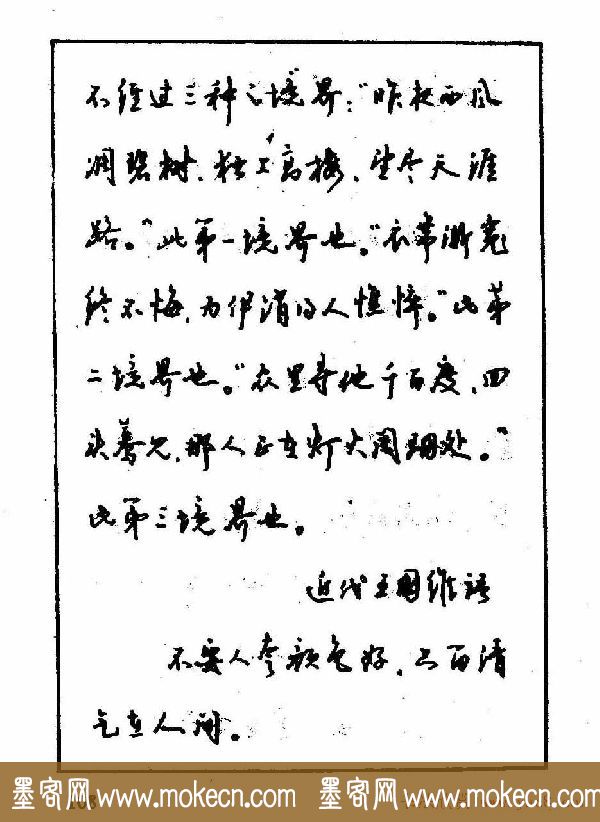 不经过三种之境界："昨夜西风
凋碧树，独上高楼，望尽天涯
路。"此第一境界也。"衣带渐宽
终不悔，为伊消得人憔悴。"此第
二境界也。"众里寻他千百度，回
头蓦见，那人正在灯火阑珊处。"
此第三境界也。
近代王国维语
不要人夸颜色好，只留清
气在人间。
墨客网 www.mokecn.com 墨客网 www.mokecn.com